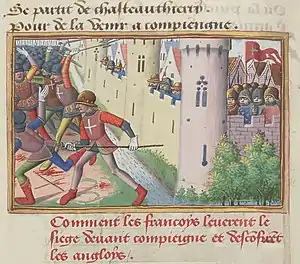 Se partit de chasteauthierry
pour de la venir a compiengne.
Comment les francoys leverent le
siege devant compieigne et desconfirent
les angloys.